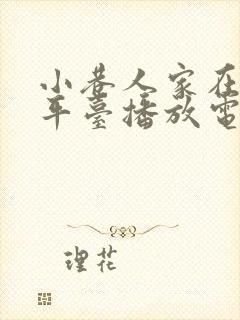 小巷人家在
年臺播放電
理花